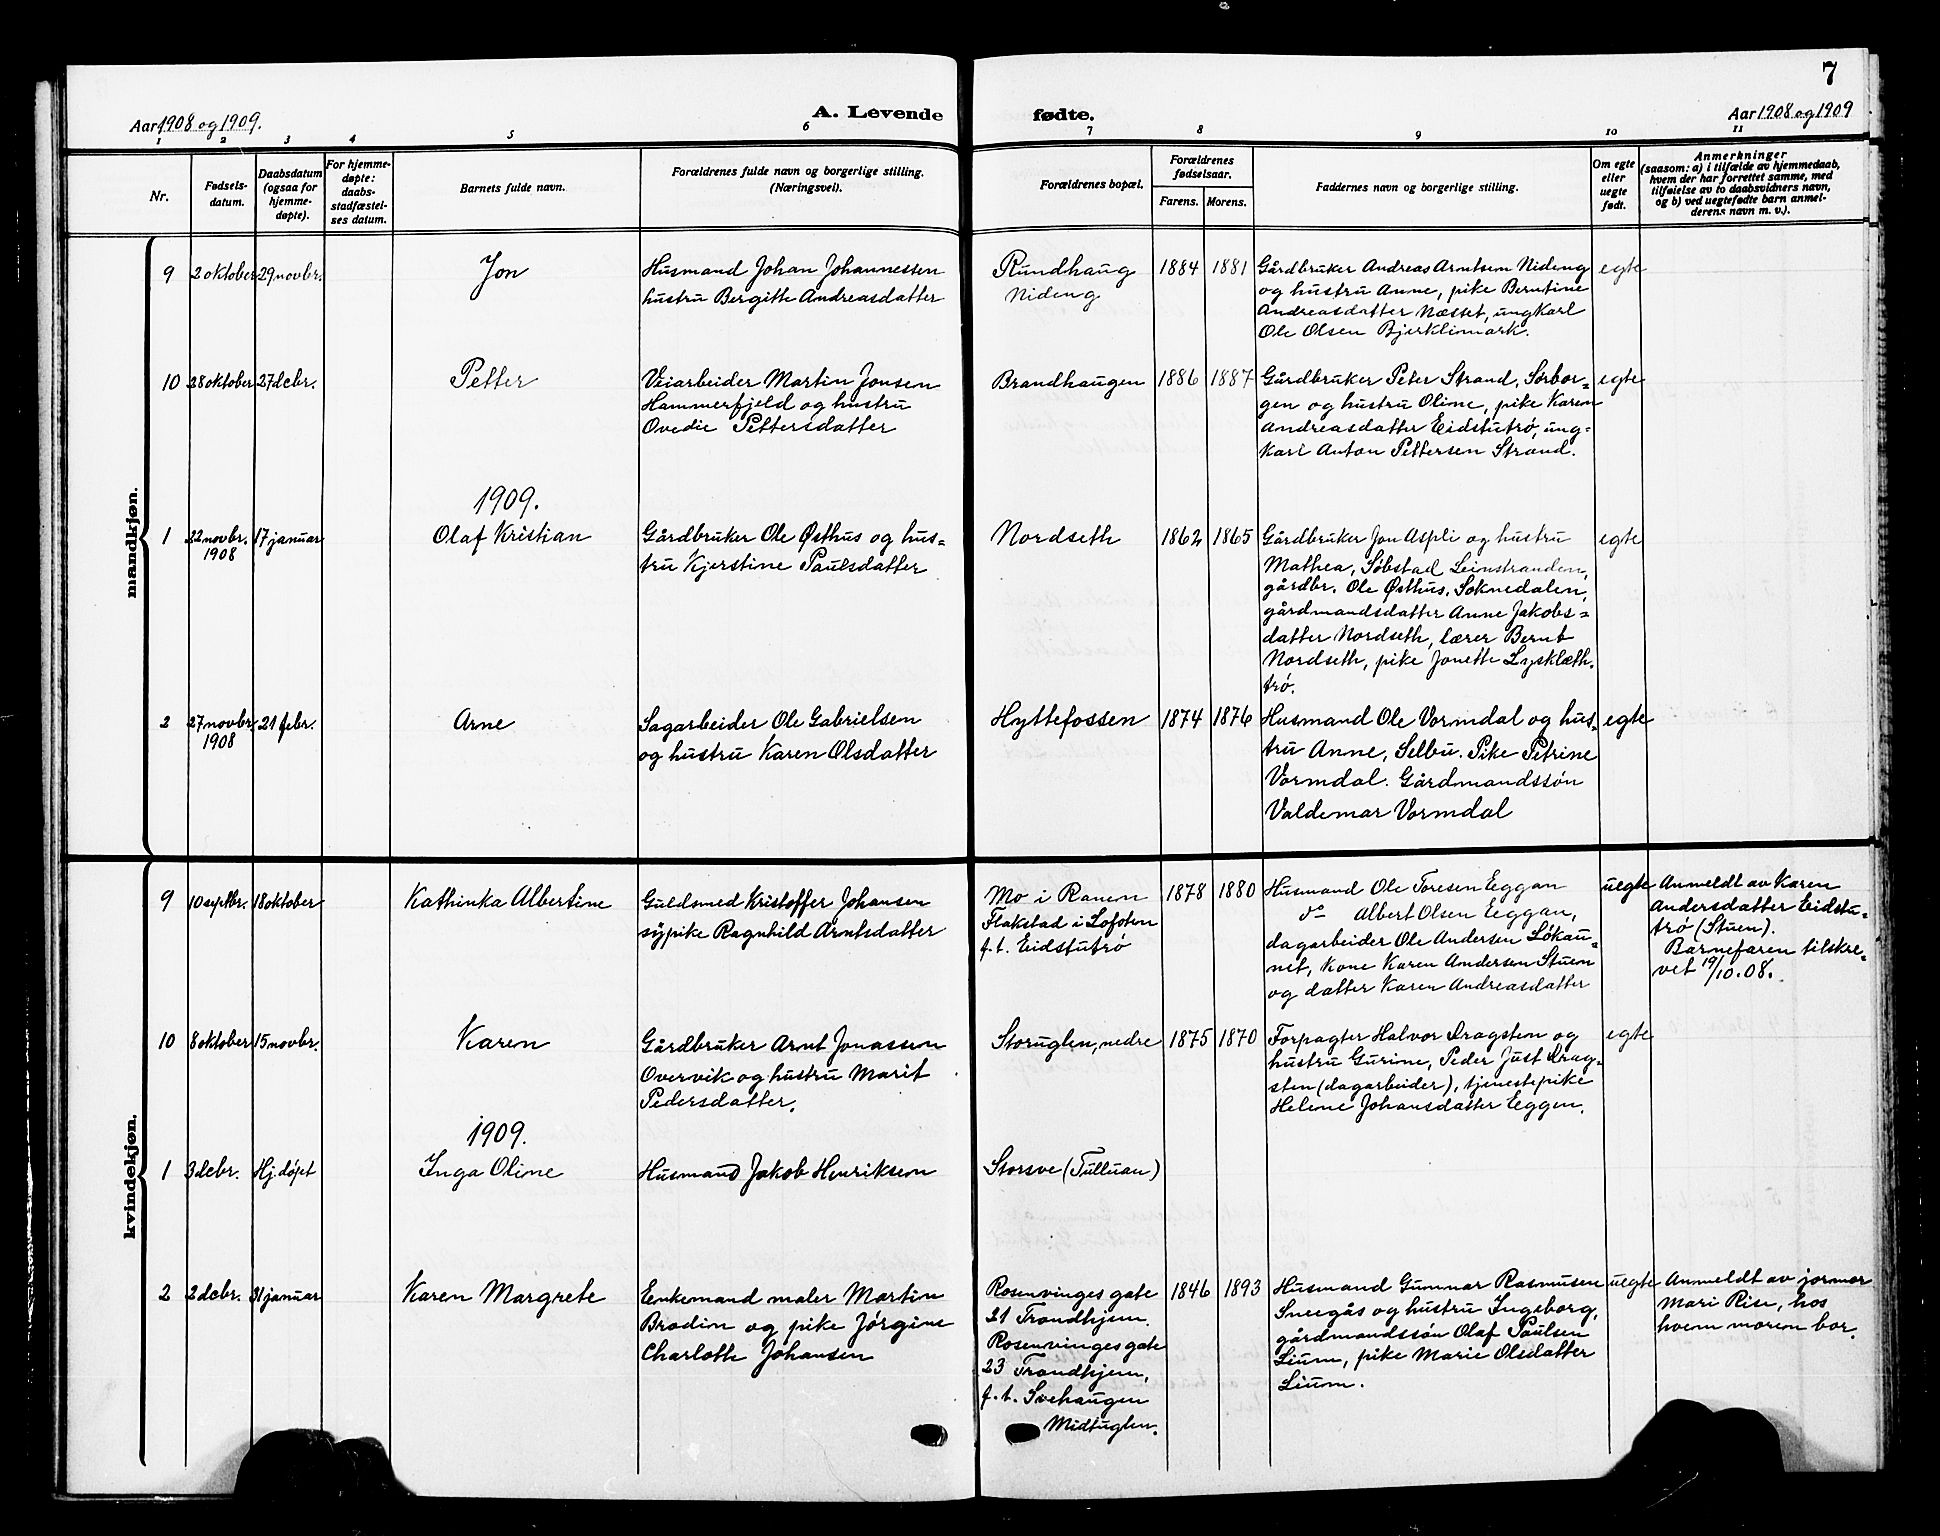 7
Aar 1908 og 1909.
A. Levende
fødte.
Aar 1908 og 1909
1 2 3 4 5 6 7 8 9 10 11
Nr.
Fødsels-
datum.
Daabsdatum
(ogsaa for
hjemme-
døpte).
For hjemme-
døpte:
daabs-
stadfæstel-
ses datum.
Barnets fulde navn.
Forældrenes fulde navn og borgerlige stilling.
(Næringsvei).
Forældrenes bopæl.
Forældrenes
fødselsaar.
Farens. Morens.
Faddernes navn og borgerlige stilling.
Om egte
eller
uegte
født.
Anmerkninger
(saasom: a) i tilfælde av hjemmedaab,
hvem der har forrettet samme, med
tilføielse av to daabsvidners navn,
og b) ved uegtefødte barn anmel-
derens navn m. v.).
mandkjøn.
9
2 oktober
29 novbr.
Jon
Husmand Johan Johannessen
hustru Bergitte Andreasdatter
Rundhaug
Nideng
1884
1881
Gårdbruker Andreas Arntsem Nideng
og hustru Anne, pike Berntine
Andreasdatter Næsset, ungkarl
Ole Olsen Bjerklimark.
egte
10
28 oktober
27 debr.
Petter
Veiarbeider Martin Jonsen
Hammerfjeld og hustru
Ovedie Pettersdatter
Brandhaugen
1886
1887
Gårdbruker Peter Strand, Sørbor=
gen og hustru Oline, pike Karen
Andreasdatter Eidstutrø, ung=
karl Anton Pettersen Strand.
egte
1909.
1
22 novbr.
1908
17 januar
Olaf Kristian
Gårdbruker Ole Østhus og hus=
tru Kjerstine Paulsdatter
Nordseth
1862
1865
Gårdbruker Jon Aspli og hustru
Mathea, Søbstad Leinstranden,
gårdbr. Ole Østhus, Soknedalen,
gårdmandsdatter Anne Jakobs=
datter Nordseth, lærer Bernt
Nordseth, pike Jonette Lysklæth.
trø.
egte
2
27 novbr.
1908
21 febr.
Arne
Sagarbeider Ole Gabrielsen
og hustru Karen Olsdatter
Hyttefossen
1874
1876
Husmand Ole Vormdal og hus=
tru Anne, Selbu. Pike Petrine
Vormdal. Gårdmandssön
Valdemar Vormdal
egte
kvindekjøn.
9
10 septbr.
18 oktober
Kathinka Albertine
Guldsmed Kristoffer Johansen
sypike Ragnhild Arntsdatter
Mo i Ranen
Flakstad i Lofoten
f. t. Eidstutrø
1878
1880
Husmand Ole Toresen Eggan
do Albert Olsen Eggan,
dagarbeider Ole Andersen Løkau=
net, kone Karen Andersen Stuen
og datter Karen Andreasdatter
uegte
Anmeldt av Karen
Andersdatter Eidstu=
trø (Stuen).
Barnefaren tilskre=
vet 19/10.08.
10
8 oktober
15 novbr.
Karen
Gårdbruker Arnt Jonassen
Overvik og hustru Marit
Pedersdatter.
Storuglen, nedre
1875
1870
Forpagter Halvor Dragsten og
hustru Gurine, Peder Just Drag=
sten (dagarbeider), tjenestepike
Helene Johansdatter Eggen.
egte
1909.
1
3 debr.
Hj. døpt
Inga Oline
Husmand Jakob Henriksen
Storsve (Tulluan)
2
2 debr.
31 januar
Karen Margrete
Enkemand maler Martin
Brodin og pike Jørgine
Charlotte Johansen
Rosenvinges gate
21 Trondhjem.
Rosenvinges gate
23 Trondhjem,
f. t. Svehaugen
Midtuglen.
1846
1893
Husmand Gunnar Rasmusen
Sneegås og hustru Ingeborg,
gårdmandssön Olaf Paulsen
Lium, pike Marie Olsdatter
Lium.
uegte
Anmeldt av jormor
Mari Risn, hos
hvem moren bor.